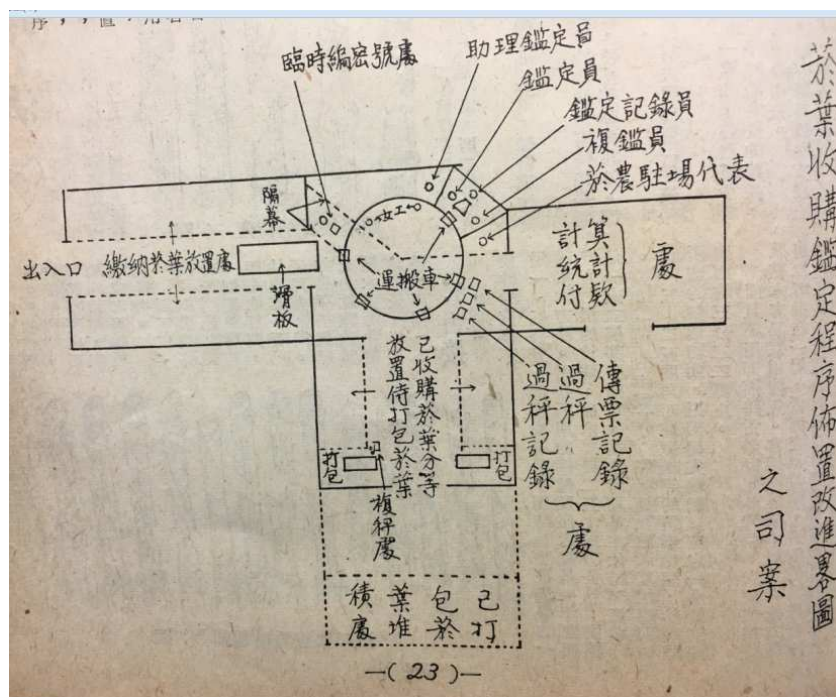 序，，置，用
菸葉收購鑑定程序佈置改進畧圖
之司案
臨時編密號處
助理鑑定員
鑑定員
鑑定記錄員
複鑑員
菸農駐場代表
隔幕
女工
出入口
繳納菸葉放置處
滑板
運搬車
計算
統計
付款
處
已收購菸葉分等
放置待打包菸葉
傳票記錄
過秤
過秤記錄
處
打包
打包
複秤處
已打
包菸
葉堆
積處
—(23)—